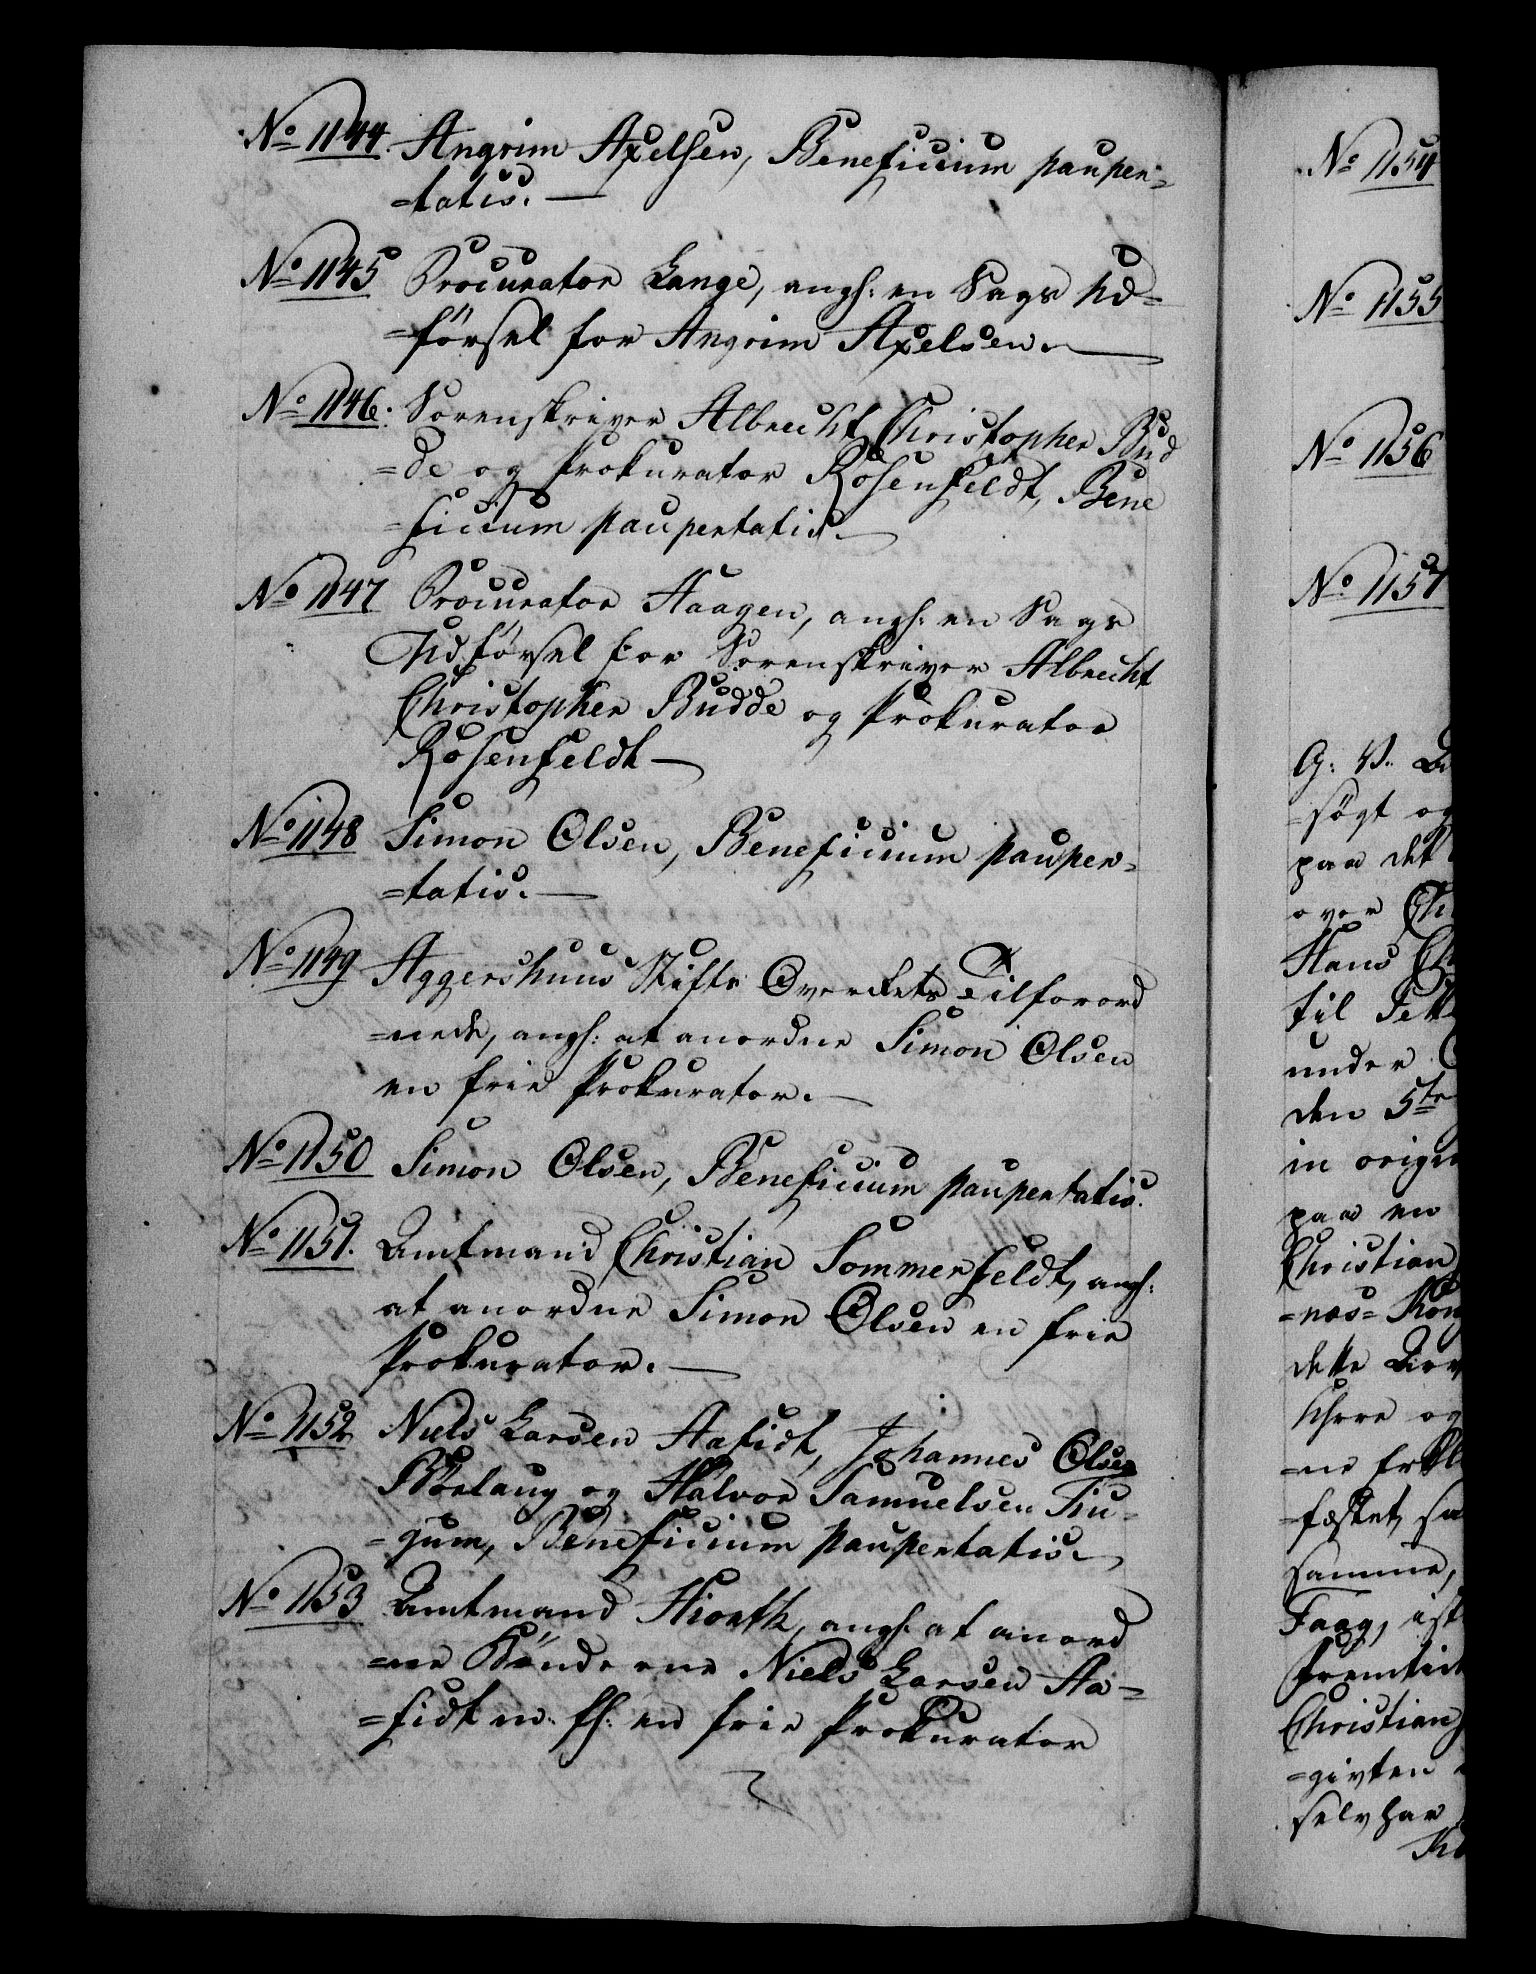 No 1144. Angrim Axelsen, Beneficium pauper=
=tatis. —
No 1145 Procurator Lange, angh: en Sags Ud=
=försel for Angrim Axelsen. —
No 1146. Sorenskriver Albrecht Christopher Bud
=de og Prokurator Rosenfeldt, Bene
=ficium paupertatis. —
No 1147 Procurator Haagen, angh: en Sags
Udförsel for Sorenskriver Albrecht
Christopher Budde og Prokurator
Rosenfeldt —
No 1148 Simon Olsen, Beneficium pauper=
=tatis. —
No 1149 Aggershuus Stifts Overrets Tilforord
=nede, angh: at anordne Simon Olsen
en frie Prokurator. —
No 1150 Simon Olsen, Beneficium paupertatis.
No 1151. Amtmand Christian Sommerfeldt, angh:
at anordne Simon Olsen en frie
Prokurator. —
No 1152 Niels Larsen Aafidt, Johannes Olsen
og Halvor Samuelsen Tiu=
=gum, Beneficium paupertatis. —
No 1153 Amtmand Hiorth, angh: at anord
=ne Bönderne Niels Larsen Aa=
=fidt m: fl: en frie Prokurator
No 1154
No 1155
No 1156
No 1157
G: V.
=sögt og
paa det
over
Hans
til
under
den 5te
in origin
paa en
Christian
=næs=
dette
Uhrre og
=fæstet
samme,
Faag,
fremtid
Christian
=givten
selv har